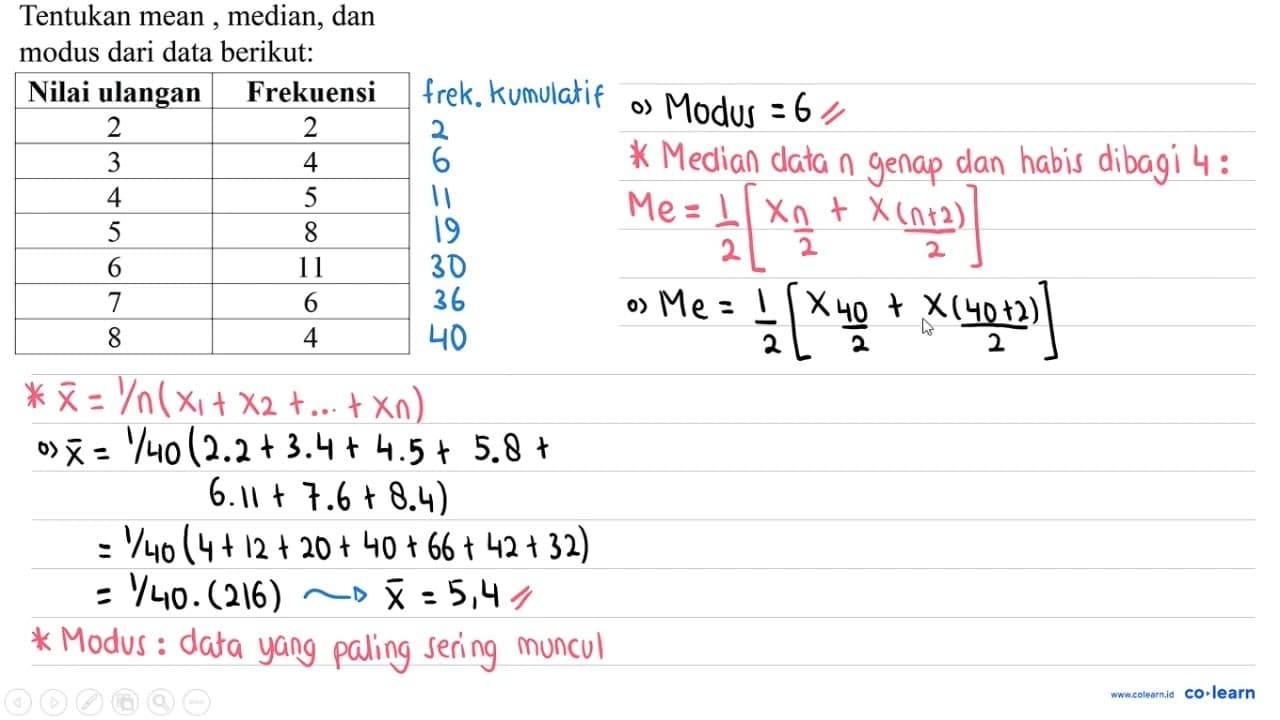 Tentukan mean , median, dan
modus dari data berikut:
Nilai ulangan Frekuensi frek. kumulatif
2 2 2
3 4 6
4 5 11
5 8 19
6 11 30
7 6 36
8 4 40
* x̄ = 1/n (x1 + x2 + ... + xn)
o) x̄ = 1/40 (2.2 + 3.4 + 4.5 + 5.8 +
6.11 + 7.6 + 8.4)
= 1/40 (4 + 12 + 20 + 40 + 66 + 42 + 32)
= 1/40 . (216) → x̄ = 5,4 //
* Modus : data yang paling sering muncul
o) Modus = 6 //
* Median data n genap dan habis dibagi 4 :
Me = 1/2 [x n/2 + x (n+2)/2]
o) Me = 1/2 [x 40/2 + x (40+2)/2]
www.colearn.id co·learn